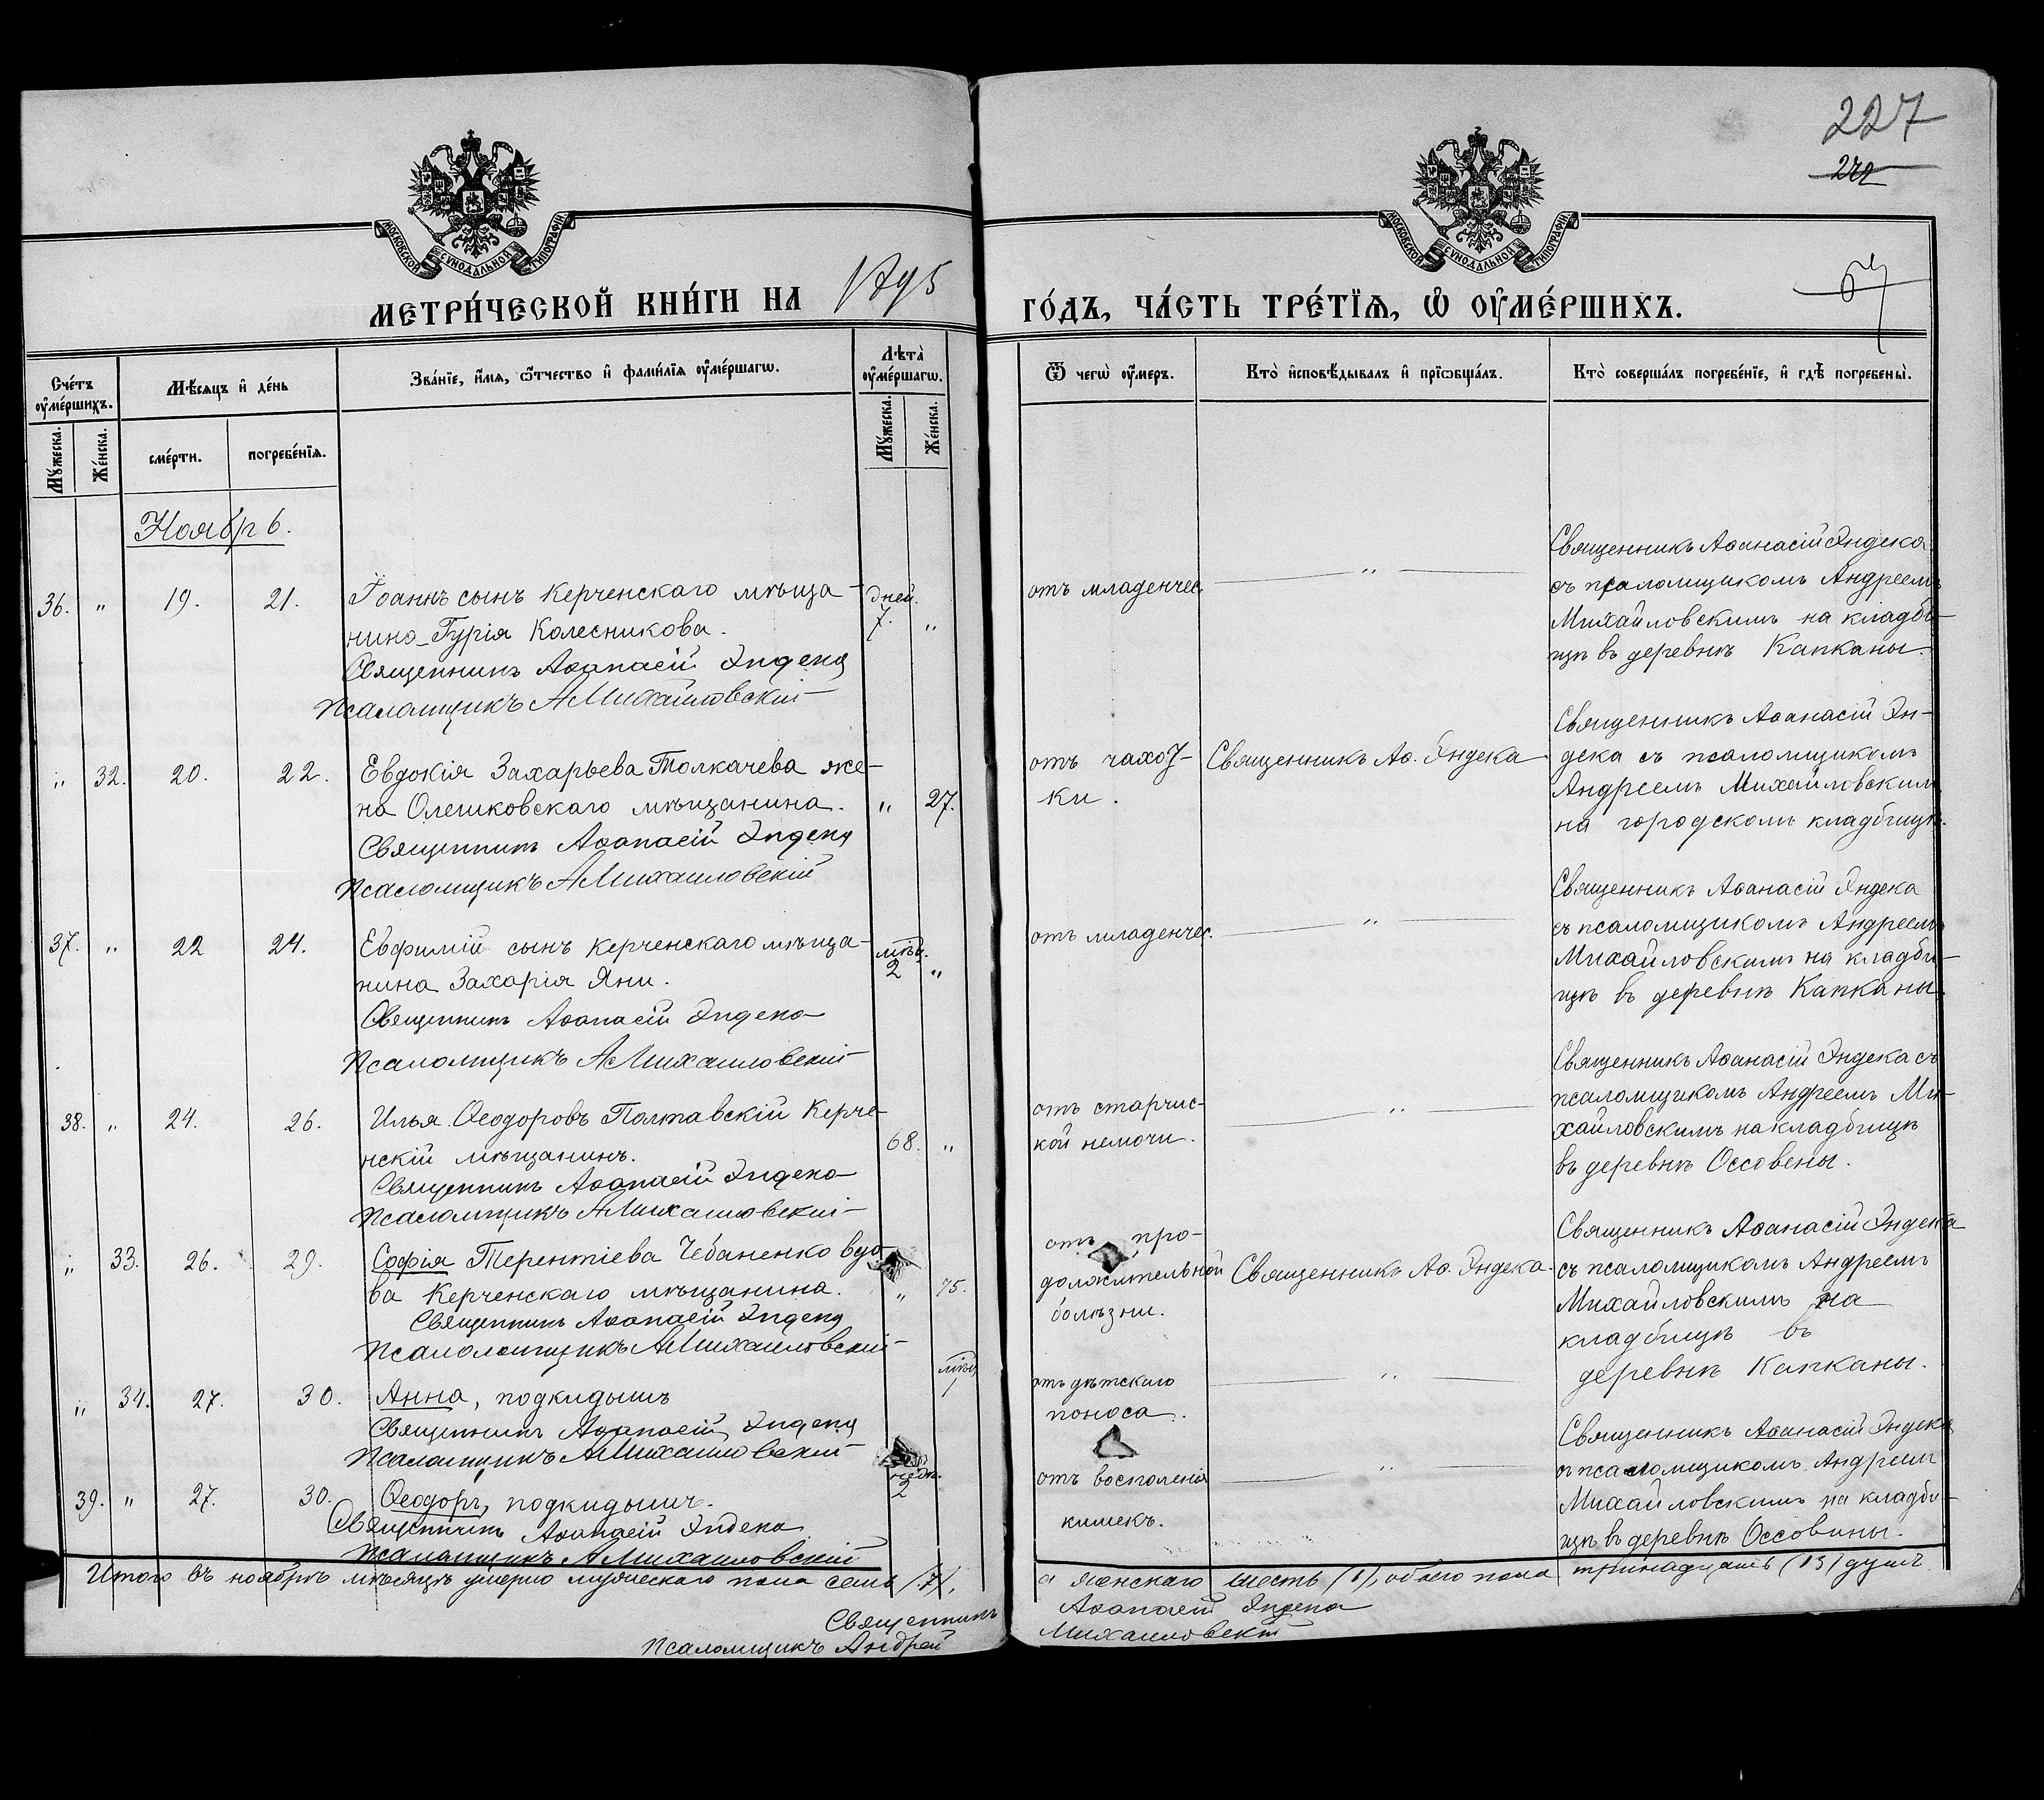 227
242
МОСКОВСКОЙ СѴНОДАЛЬНОЙ ТИПОГРАФІИ
МОСКОВСКОЙ СѴНОДАЛЬНОЙ ТИПОГРАФІИ
МЕТРИ́ЧЕСКОЙ КНИ́ГИ НА 1895
ГО́ДЪ, ЧА́СТЬ ТРЕ́ТІѦ, Ѽ ОУ҆МЕ́РШИХЪ.
Сче́тъ оу҆ме́ршихъ.
Мѣ́сяцъ и҆ де́нь
Зва́нїе, и҆́мѧ, ѻ҆́тчество и҆ фами́лїѧ оу҆ме́ршагѡ.
Лѣта̀ оу҆ме́ршагѡ.
Му́жеска.
Же́нска.
сме́рти.
погребе́нїѧ.
Му́жеска.
Же́нска.
Ѿ чегѡ̀ оу҆́меръ.
Кто̀ и҆сповѣ́дывалъ и҆ прїѡбща́лъ.
Кто̀ соверша́лъ погребе́нїе, и҆ гдѣ̀ погребены̀.
Ноябрь.
36. " 19. 21. Іоаннъ сынъ Керченскаго мѣща-
нина Гурія Колесникова.
Священникъ Аѳанасій Эндека
Псаломщикъ АМихайловскій
дней.
7. "
отъ младенчес.
"
Священникъ Аѳанасій Эндека
съ псаломщикомъ Андреемъ
Михайловскимъ на кладби-
щѣ въ деревнѣ Капканы.
" 32. 20. 22. Евдокія Захарьева Толкачева же-
на Олешковскаго мѣщанина. " 27.
Священникъ Аѳанасій Эндека
Псаломщикъ АМихайловскій
отъ чахот-
ки.
Священникъ Аѳ. Эндека
Священникъ Аѳанасій Эн-
дека съ псаломщикомъ
Андреемъ Михайловскимъ
на городскомъ кладбищѣ.
37. " 22 24. Евфимій сынъ Керченскаго мѣща-
нина Захарія Яни.
Священникъ Аѳанасій Эндека
Псаломщикъ АМихайловскій
мѣц.
2 "
отъ младенчес.
"
Священникъ Аѳанасій Эндека
съ псаломщикомъ Андреемъ
Михайловскимъ на кладби-
щѣ въ деревнѣ Капканы.
38. " 24. 26. Илья Ѳеодоровъ Полтавскій Керче-
нскій мѣщанинъ. 68. "
Священникъ Аѳанасій Эндека
Псаломщикъ АМихайловскій
отъ старчис-
кой немочи.
"
Священникъ Аѳанасій Эндека съ
псаломщикомъ Андреемъ Ми-
хайловскимъ на кладбищѣ
въ деревнѣ Оссовены.
" 33. 26. 29. Софія Терентіева Чебаненко вдо-
ва Керченскаго мѣщанина. " 75.
Священникъ Аѳанасій Эндека
Псаломщикъ АМихайловскій
отъ про-
должительной
болѣзни.
Священникъ Аѳ. Эндека.
Священникъ Аѳанасій Эндека
съ псаломщикомъ Андреемъ
Михайловскимъ на
кладбищѣ въ
деревнѣ Капканы.
" 34. 27. 30. Анна, подкидышъ
Священникъ Аѳанасій Эндека
Псаломщикъ АМихайловскій
мѣц
1
отъ дѣтскаго
поноса.
"
39. " 27. 30. Ѳеодоръ, подкидышъ.
Священникъ Аѳанасій Эндека
Псаломщикъ АМихайловскій
2
отъ воспаленія
кишекъ.
"
Священникъ Аѳанасій Эндека
съ псаломщикомъ Андреемъ
Михайловскимъ на кладби-
щѣ въ деревнѣ Оссовины.
Итого въ ноябрѣ мѣсяцѣ умерло мужескаго пола семь (7),
а женскаго шесть (6), обоего пола тринадцать (13) душъ
Священникъ Аѳанасій Эндека
Псаломщикъ Андрей Михайловскій